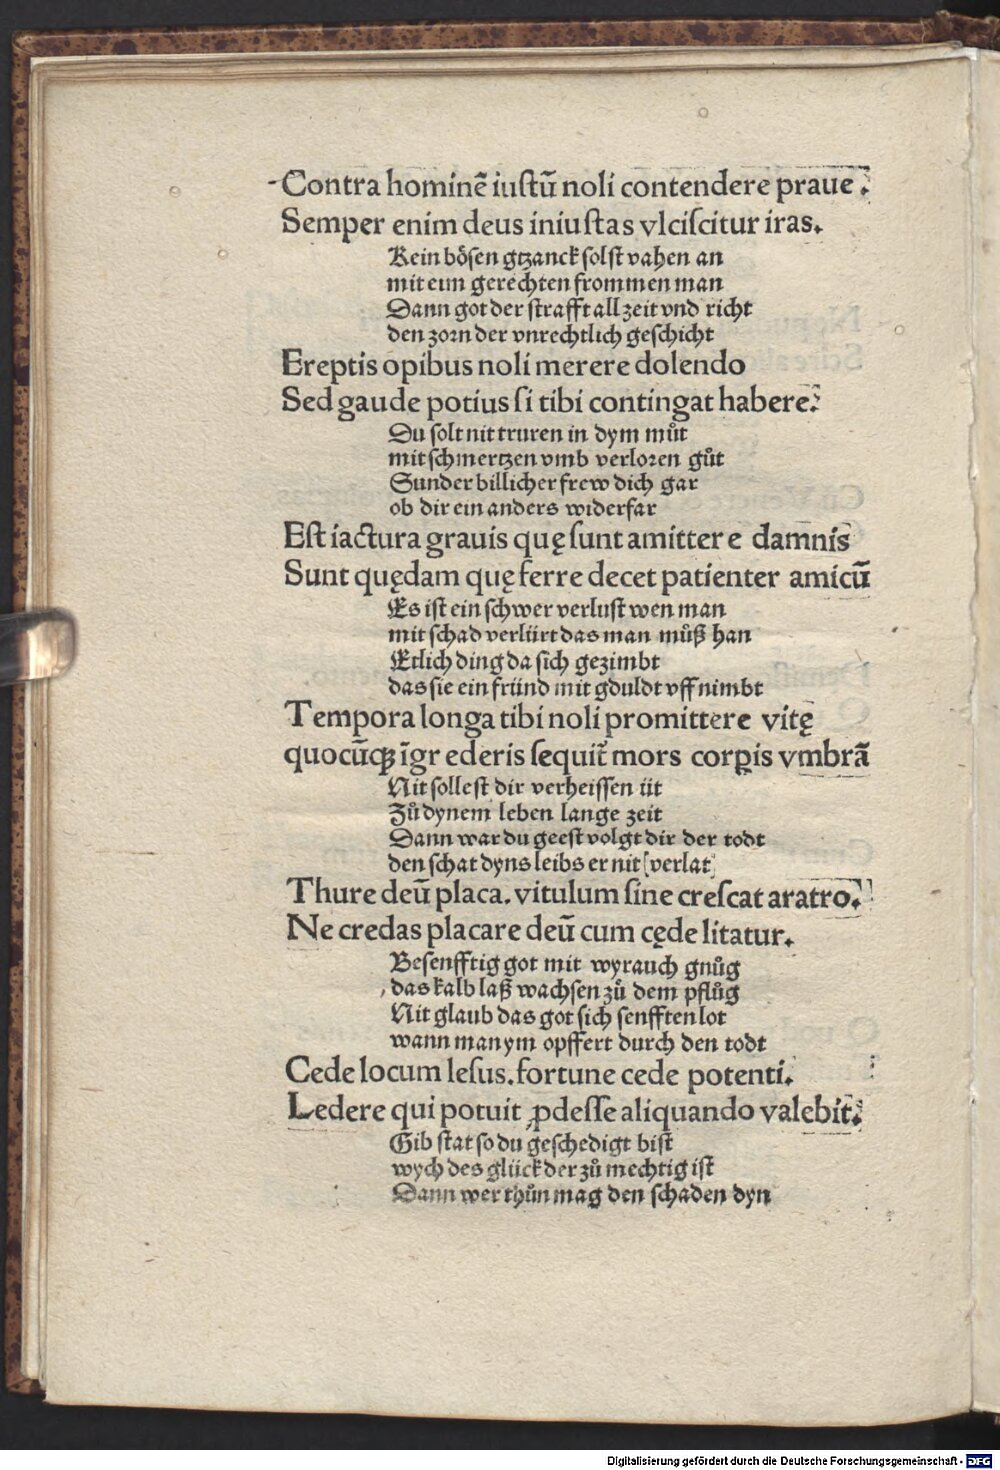 Contra hominē iustū noli contendere praue.
Semper enim deus iniustas vlciscitur iras.
Kein bösen gtzanck solst vahen an
mit eim gerechten frommen man
Dann got der strafft all zeit vnd richt
den zorn der vnrechtlich geschicht
Ereptis opibus noli merere dolendo
Sed gaude potius si tibi contingat habere.
Du solt nit truren in dym můt
mit schmertzen vmb verloren gůt
Sunder billicher frew dich gar
ob dir ein anders widerfar
Est iactura grauis quę sunt amittere damnis
Sunt quędam quę ferre decet patienter amicū
Es ist ein schwer verlust wen man
mit schad verlürt das man můß han
Etlich ding da sich gezimbt
das sie ein fründ mit gduldt vff nimbt
Tempora longa tibi noli promittere vitę
quocūqꝫ īgrederis sequit᷑ mors corꝑis vmbrā
Nit sollest dir verheissen üt
Zů dynem leben lange zeit
Dann war du geest volgt dir der todt
den schat dyns leibs er nit [verlat]
Thure deū placa. vitulum sine crescat aratro.
Ne credas placare deū cum cęde litatur.
Besenfftig got mit wyrauch gnůg
das kalb laß wachsen zů dem pflůg
Nit glaub das got sich senfften lot
wann man ym opffert durch den todt
Cede locum lesus. fortune cede potenti.
Ledere qui potuit ꝓdesse aliquando valebit.
Gib stat so du geschedigt bist
wych des glück der zů mechtig ist
Dann wer thůn mag den schaden dyn
Digitalisierung gefördert durch die Deutsche Forschungsgemeinschaft - DFG